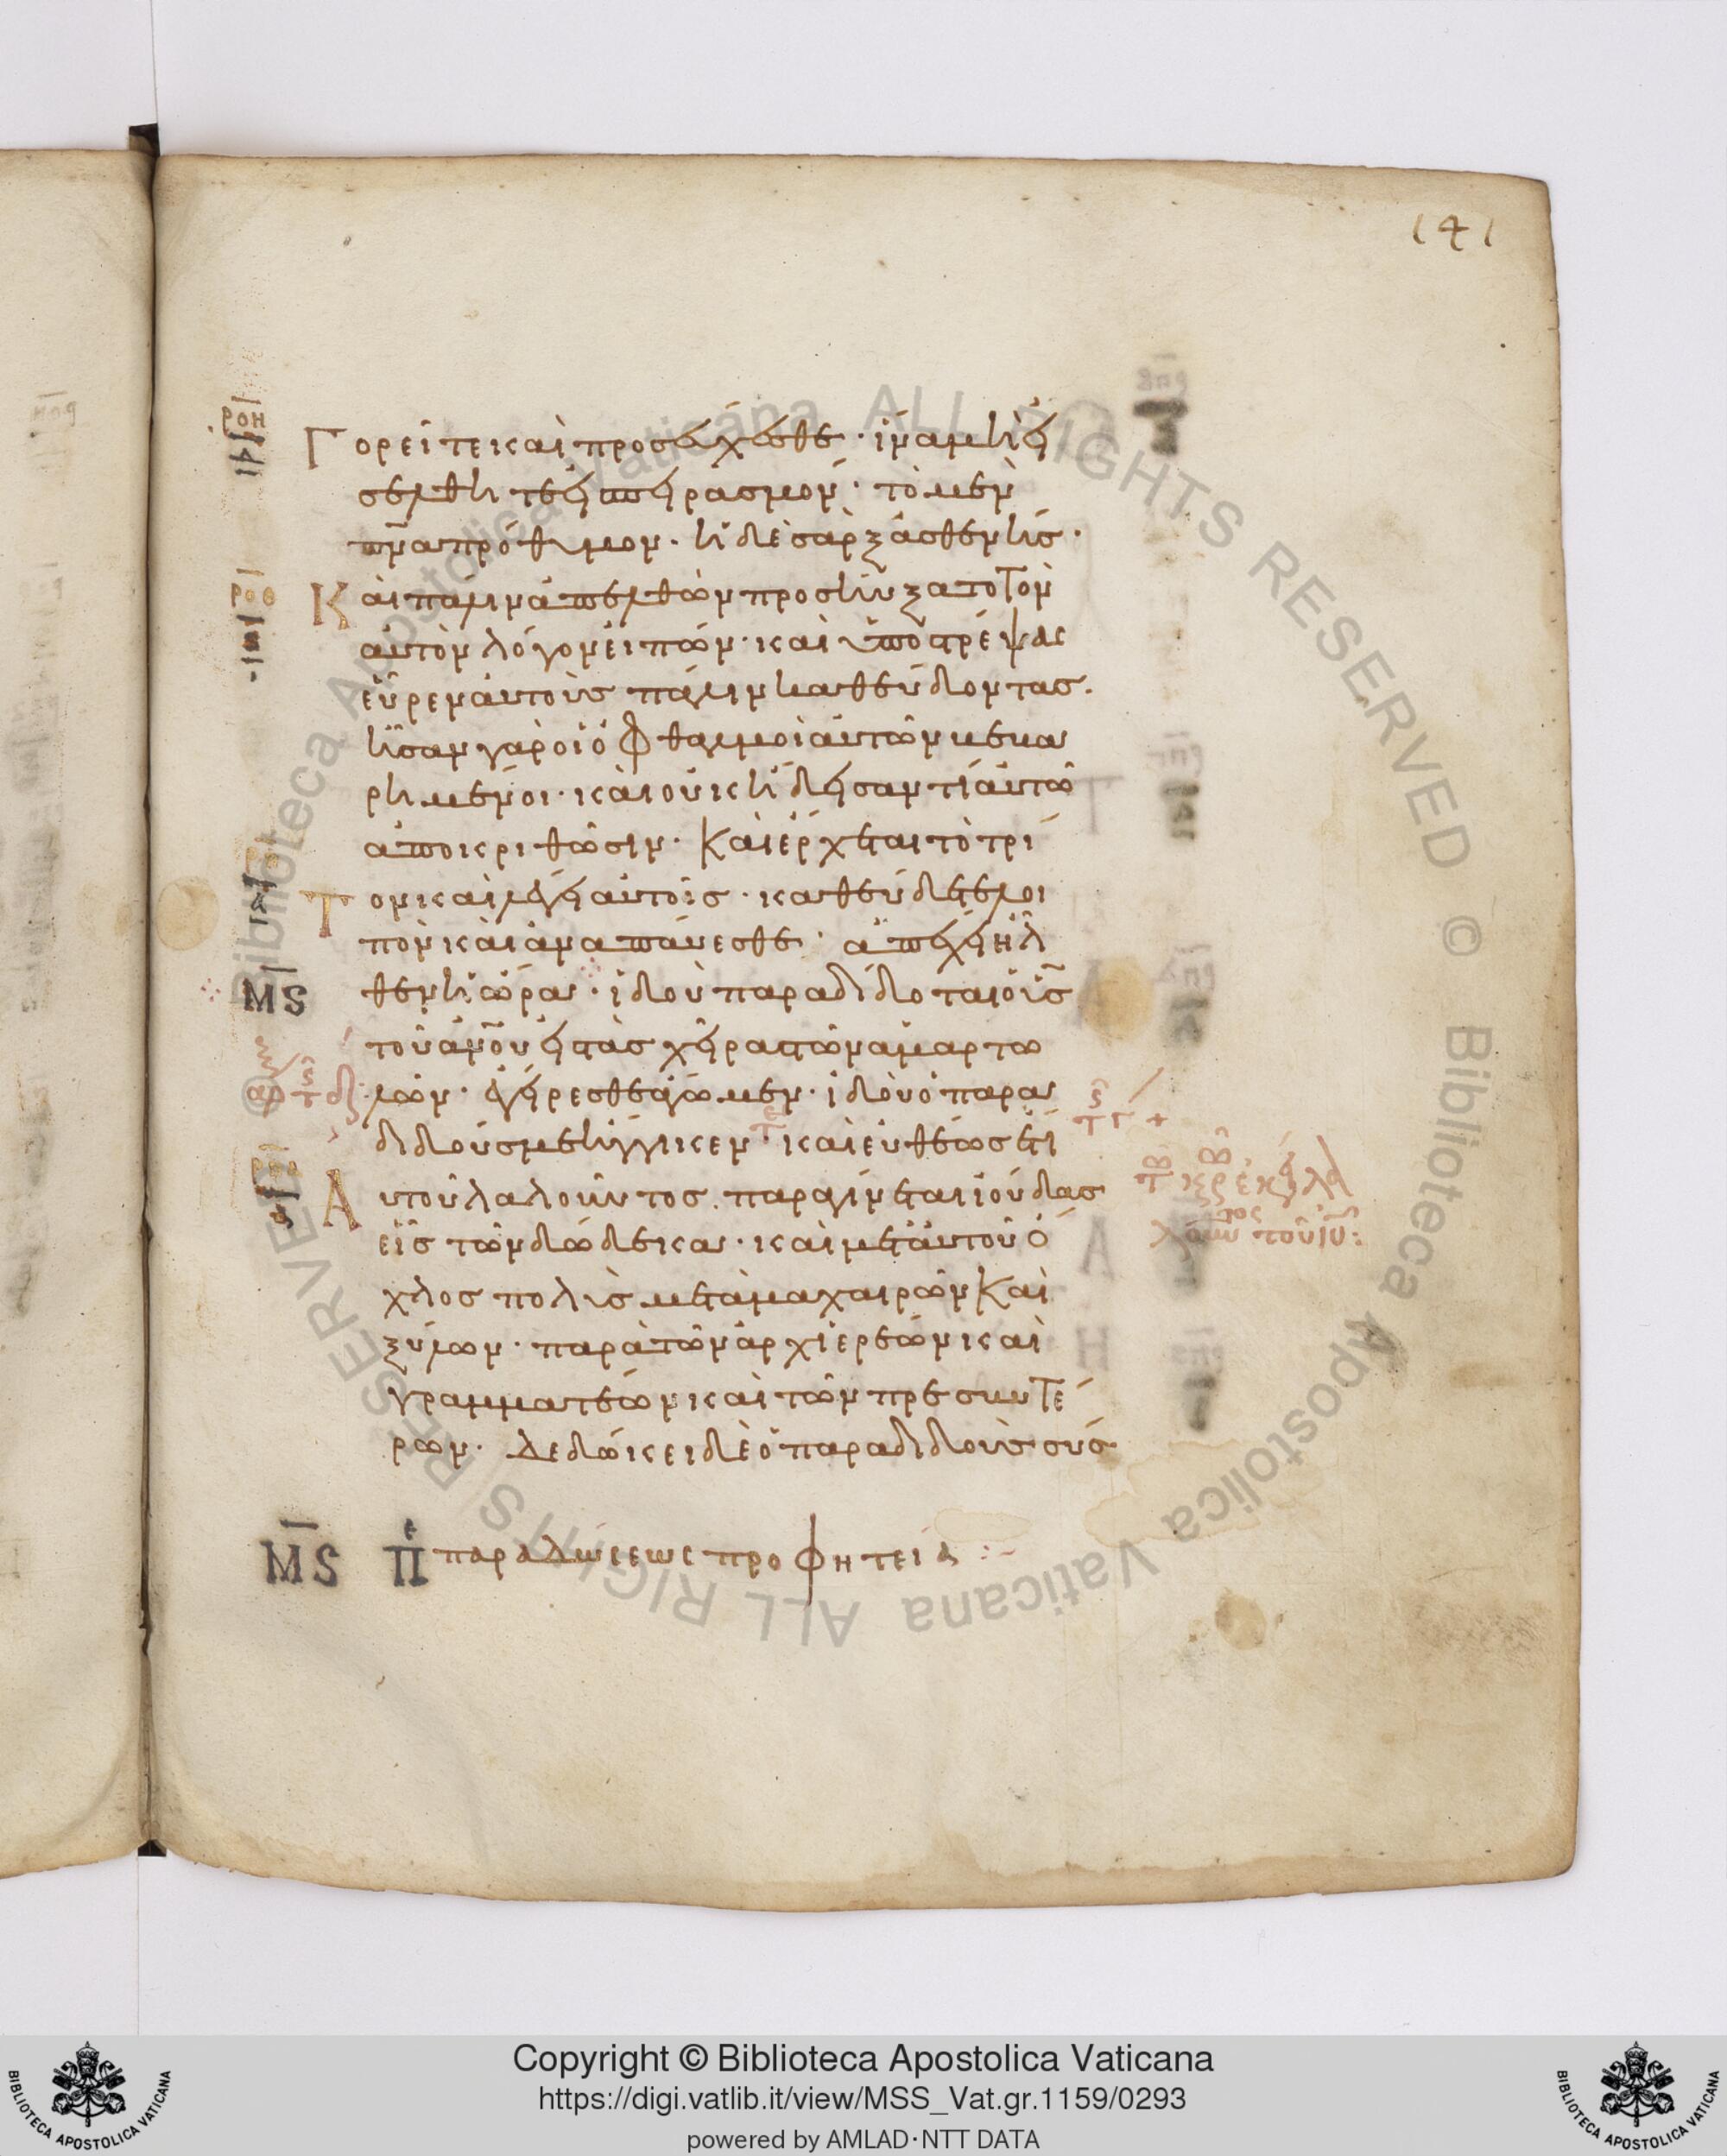 141
ροη
Γορεῖτε καὶ προσεύχεσθε· ἵνα μὴ εἰ
σέλθητε εἰς πειρασμόν· τὸ μὲν
πνα πρόθυμον· ἡ δὲ σὰρξ ἀσθενής·
ροθ
Καὶ πάλιν ἀπελθὼν προσηύξατο τὸν
αὐτὸν λόγον εἰπών· καὶ ὑποστρέψας
εὗρεν αὐτοὺς πάλιν καθεύδοντας.
ἦσαν γὰρ οἱ ὀφθαλμοὶ αὐτῶν βεβα
ρημένοι· καὶ οὐκ ἤδεισαν τί αὐτῶ
ἀποκριθῶσιν· Καὶ ἔρχεται τὸ τρί
Τον καὶ λέγει αὐτοῖς· καθεύδετε λοι
πὸν καὶ ἀναπαύεσθε· ἀπέχει ἦλ
ΜS
θεν ἡ ὥρα· ἰδοὺ παραδίδοται ὁ υς
τοῦ ανου εἰς τὰς χεῖρας τῶν ἁμαρτω
λῶν· ἐγείρεσθε ἄγωμεν· ἰδοὺ ὁ παρα
διδούς με ἤγγικεν· καὶ εὐθέως ἔτι
Αὐτοῦ λαλοῦντος. παραγίνεται ἰούδας
εἷς τῶν δώδεκα· καὶ μετ' αὐτοῦ ὄ
χλος πολὺς μετὰ μαχαιρῶν Καὶ
ξύλων· παρὰ τῶν ἀρχιερέων καὶ
γραμματέων καὶ τῶν πρεσβυτέ
ρων· Δεδώκει δὲ ὁ παραδιδοὺς σύσ
ΜS Πε παραδώσεως προφητεία
Copyright © Biblioteca Apostolica Vaticana
https://digi.vatlib.it/view/MSS_Vat.gr.1159/0293
powered by AMLAD·NTT DATA
BIBLIOTECA APOSTOLICA VATICANA
BIBLIOTECA APOSTOLICA VATICANA
Biblioteca Apostolica Vaticana ALL RIGHTS RESERVED © Biblioteca Apostolica Vaticana ALL RIGHTS RESERVED ©